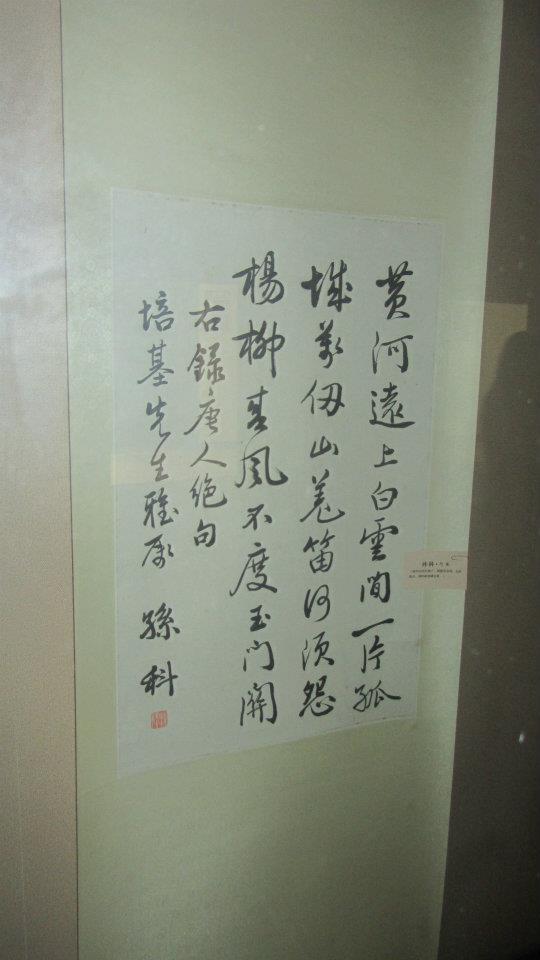 黄河遠上白雲間一片孤
城萬仞山羌笛何須怨
楊柳春風不度玉門關
右錄唐人絕句
培基先生雅屬 孫科